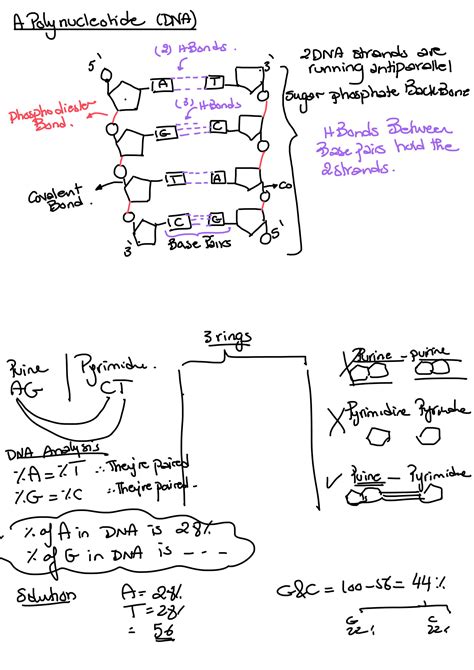 A Polynucleotide (DNA)
(2) H Bonds.
5'
3'
A
T
2 DNA strands are
running antiparallel
Sugar phosphate BackBone
(3) H Bonds
Phosphodiester
Bond.
G
C
H Bonds Between
Base Pairs hold the
2 strands.
T
A
Covalent
Bond.
Co
C
G
3'
5'
Base Pairs
3 rings
Purine | Pyrimidine.
AG CT
Purine - purine
Pyrimidine Pyrimidine
DNA Analysis
%A = %T ∴ They're paired
%G = %C ∴ They're paired.
Purine - Pyrimidine
% of A in DNA is 28%
% of G in DNA is - - -
Solution
A = 28%
T = 28%
= 56
G&C = 100-56 = 44%
G C
22% 22%